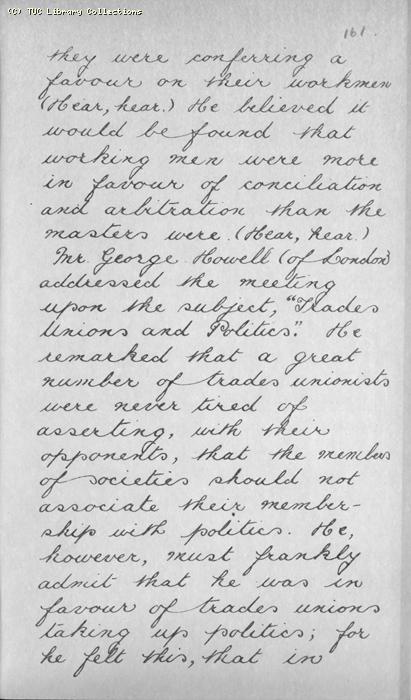 (C) TUC Library Collections
161.
they were conferring a
favour on their workmen
(Hear, hear.) He believed it
would be found that
working men were more
in favour of conciliation
and arbitration than the
masters were. (Hear, hear.)
Mr. George Howell (of London)
addressed the meeting
upon the subject, "Trades
Unions and Politics." He
remarked that a great
number of trades unionists
were never tired of
asserting, with their
opponents, that the members
of societies should not
associate their member-
ship with politics. He,
however, must frankly
admit that he was in
favour of trades unions
taking up politics; for
he felt this, that in